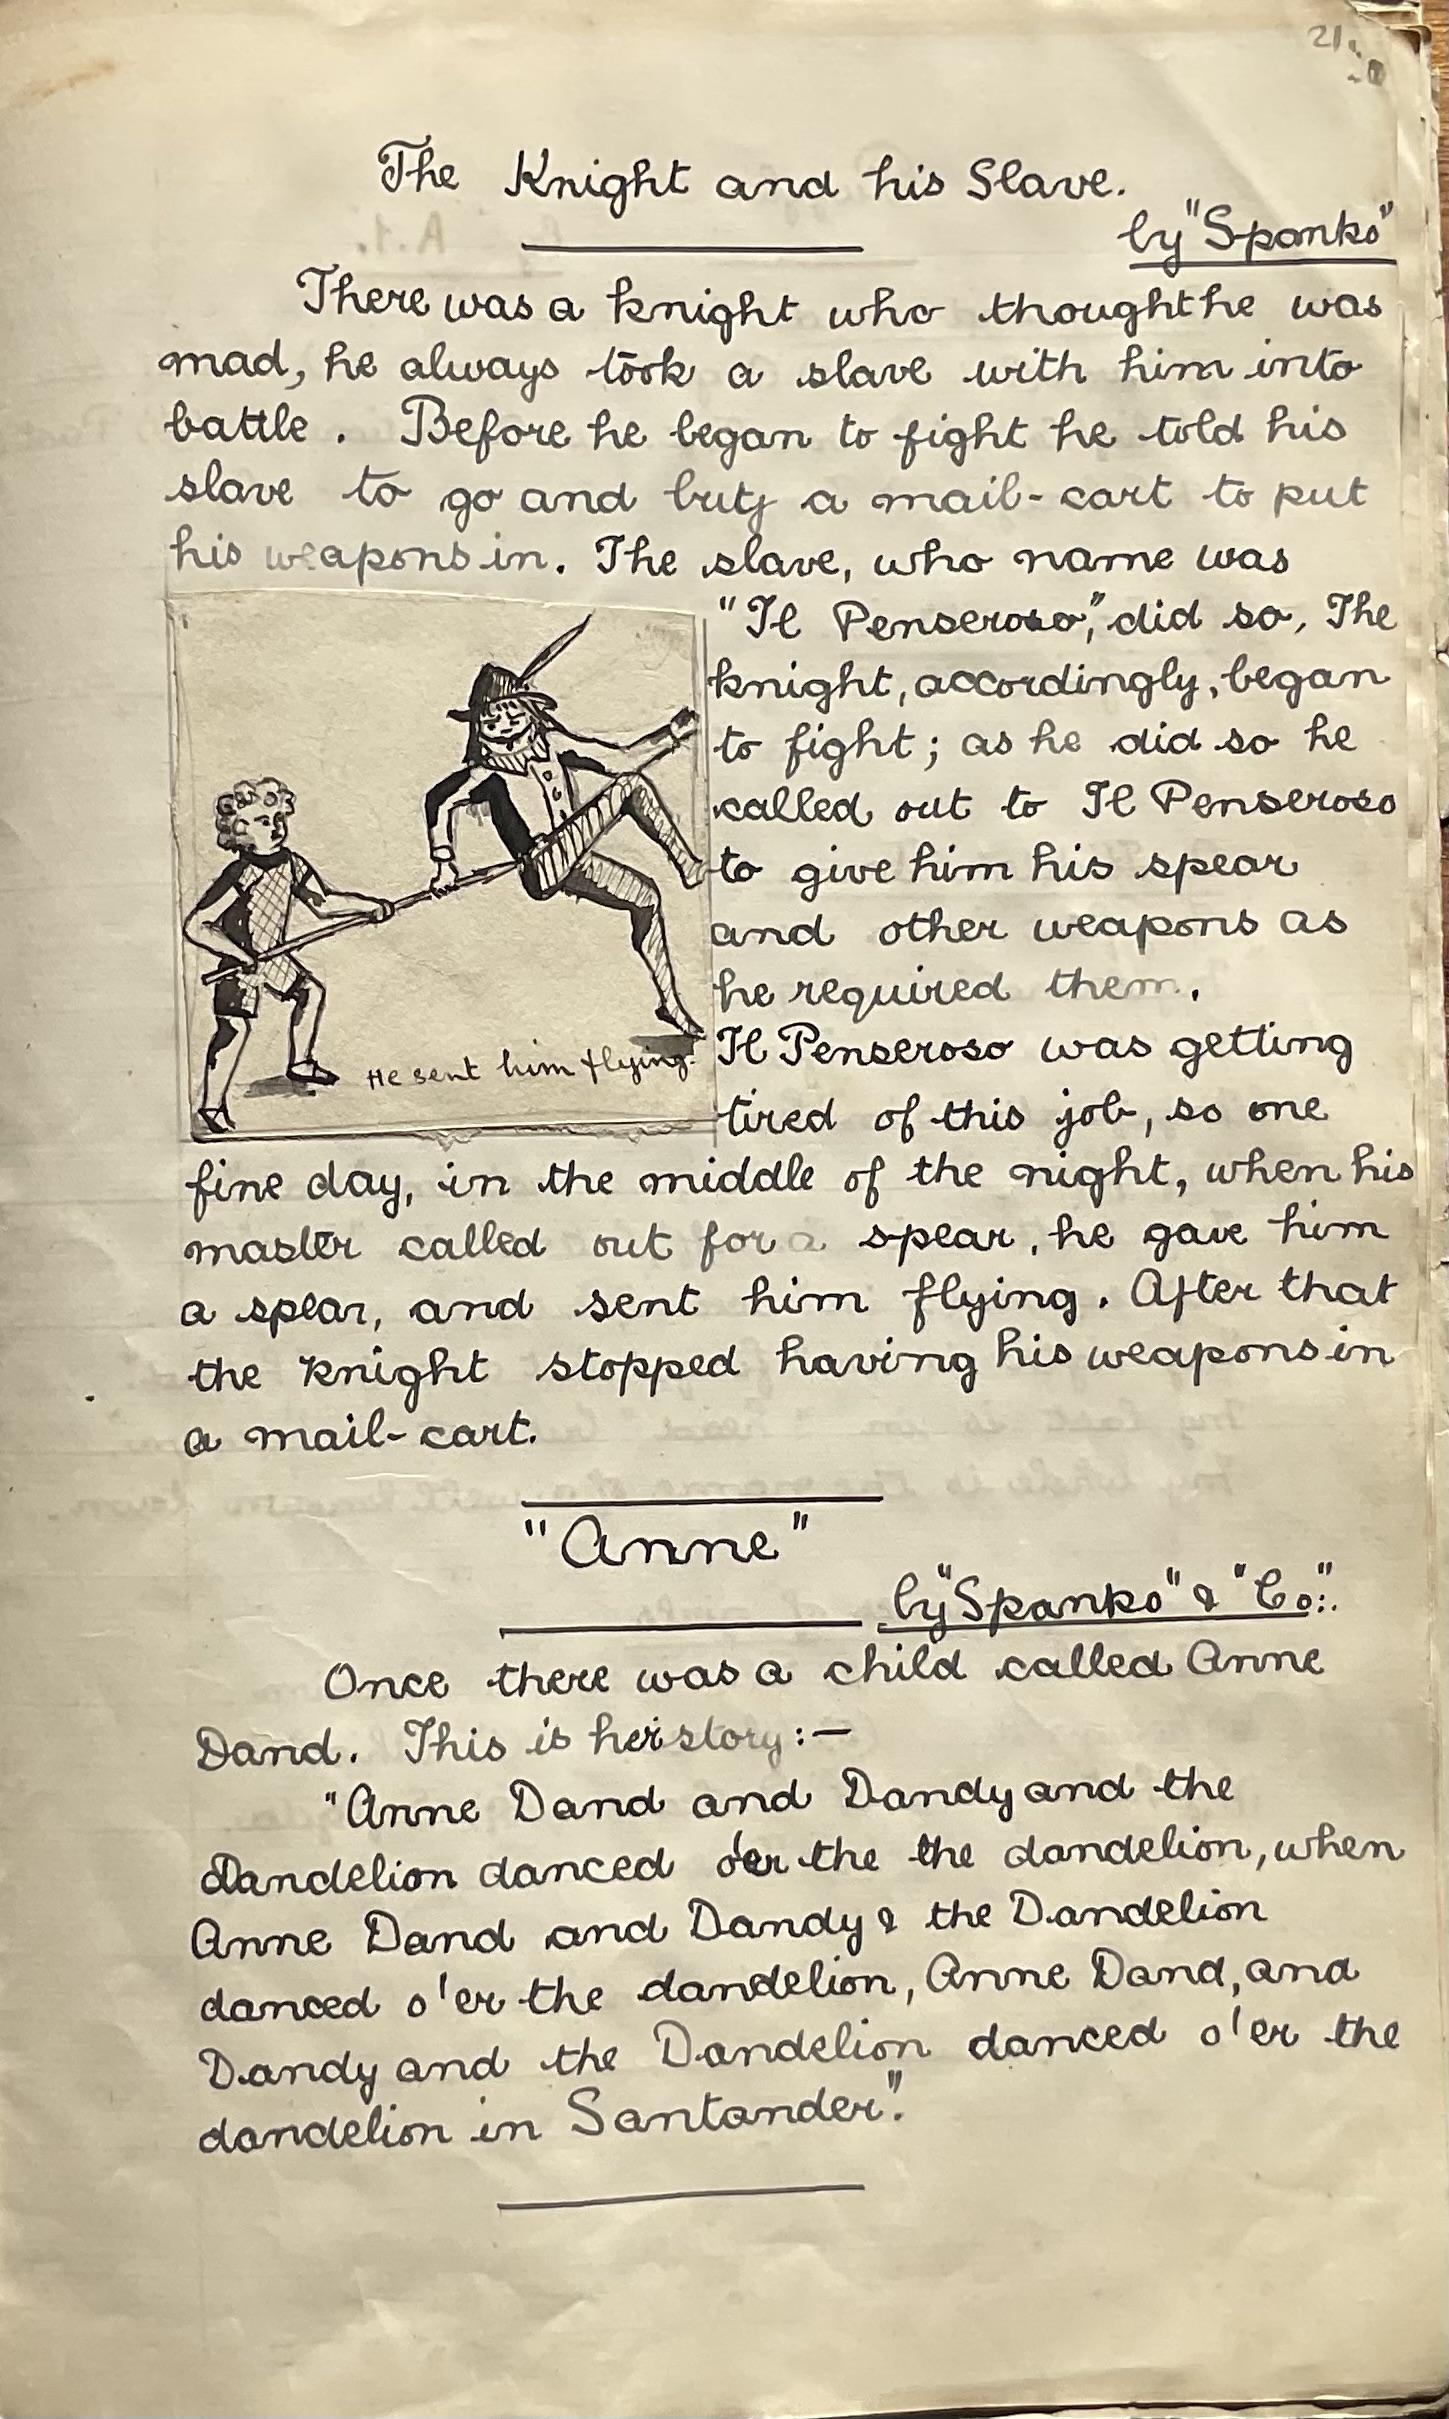 21
The Knight and his Slave.
by "Spanko"
There was a knight who thought he was
mad, he always took a slave with him into
battle. Before he began to fight he told his
slave to go and buy a mail-cart to put
his weapons in. The slave, who name was
"Il Penseroso," did so, The
knight, accordingly, began
to fight; as he did so he
called out to Il Penseroso
to give him his spear
and other weapons as
he required them.
Il Penseroso was getting
tired of this job, so one
He sent him flying.
fine day, in the middle of the night, when his
master called out for a spear, he gave him
a spear, and sent him flying. After that
the knight stopped having his weapons in
a mail-cart.
"Anne"
by "Spanko" & "Co:".
Once there was a child called Anne
Dand. This is her story:—
"Anne Dand and Dandy and the
Dandelion danced o'er the the dandelion, when
Anne Dand and Dandy & the Dandelion
danced o'er the dandelion, Anne Dand, and
Dandy and the Dandelion danced o'er the
dandelion in Santander".